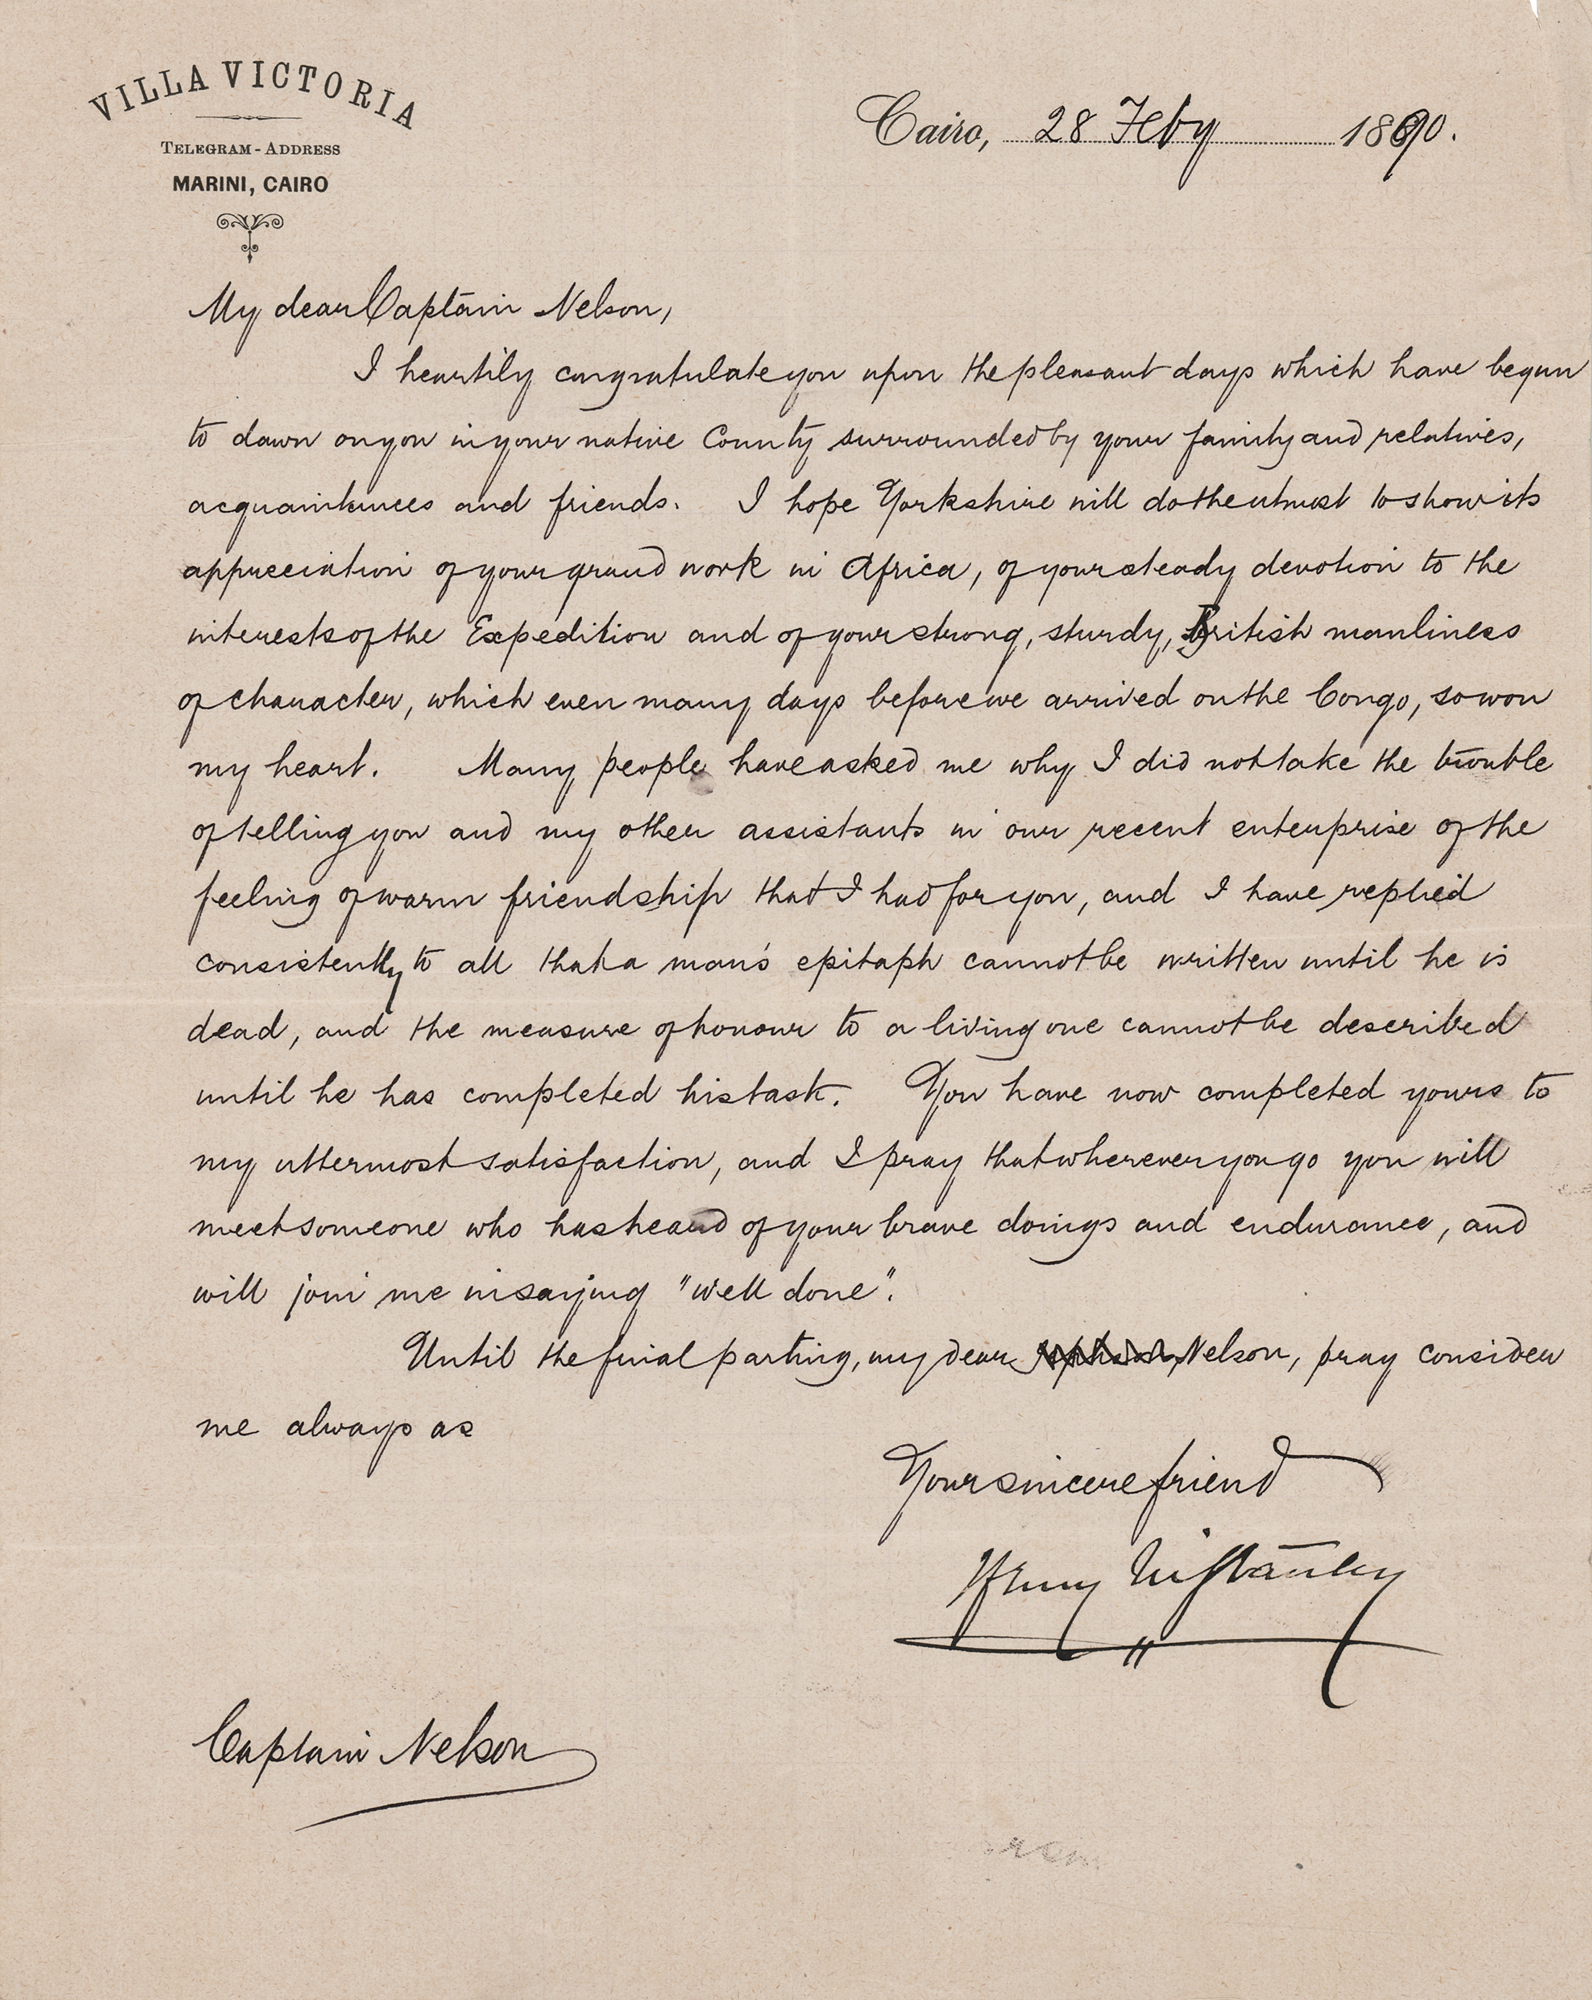 VILLA VICTORIA
TELEGRAM-ADDRESS
MARINI, CAIRO
Cairo, 28 Feby 1890.
My dear Captain Nelson,
I heartily congratulate you upon the pleasant days which have begun
to dawn on you in your native County surrounded by your family and relatives,
acquaintances and friends. I hope Yorkshire will do the utmost to show its
appreciation of your grand work in Africa, of your steady devotion to the
interests of the Expedition and of your strong, sturdy, British manliness
of character, which even many days before we arrived on the Congo, so won
my heart. Many people have asked me why I did not take the trouble
of telling you and my other assistants in our recent enterprise of the
feeling of warm friendship that I had for you, and I have replied
consistently to all that a man's epitaph cannot be written until he is
dead, and the measure of honour to a living one cannot be described
until he has completed his task. You have now completed yours to
my uttermost satisfaction, and I pray that wherever you go you will
meet someone who has heard of your brave doings and endurance, and
will join me in saying "well done".
Until the final parting, my dear Nelson, pray consider
me always as
Your sincere friend
Henry M Stanley
Captain Nelson